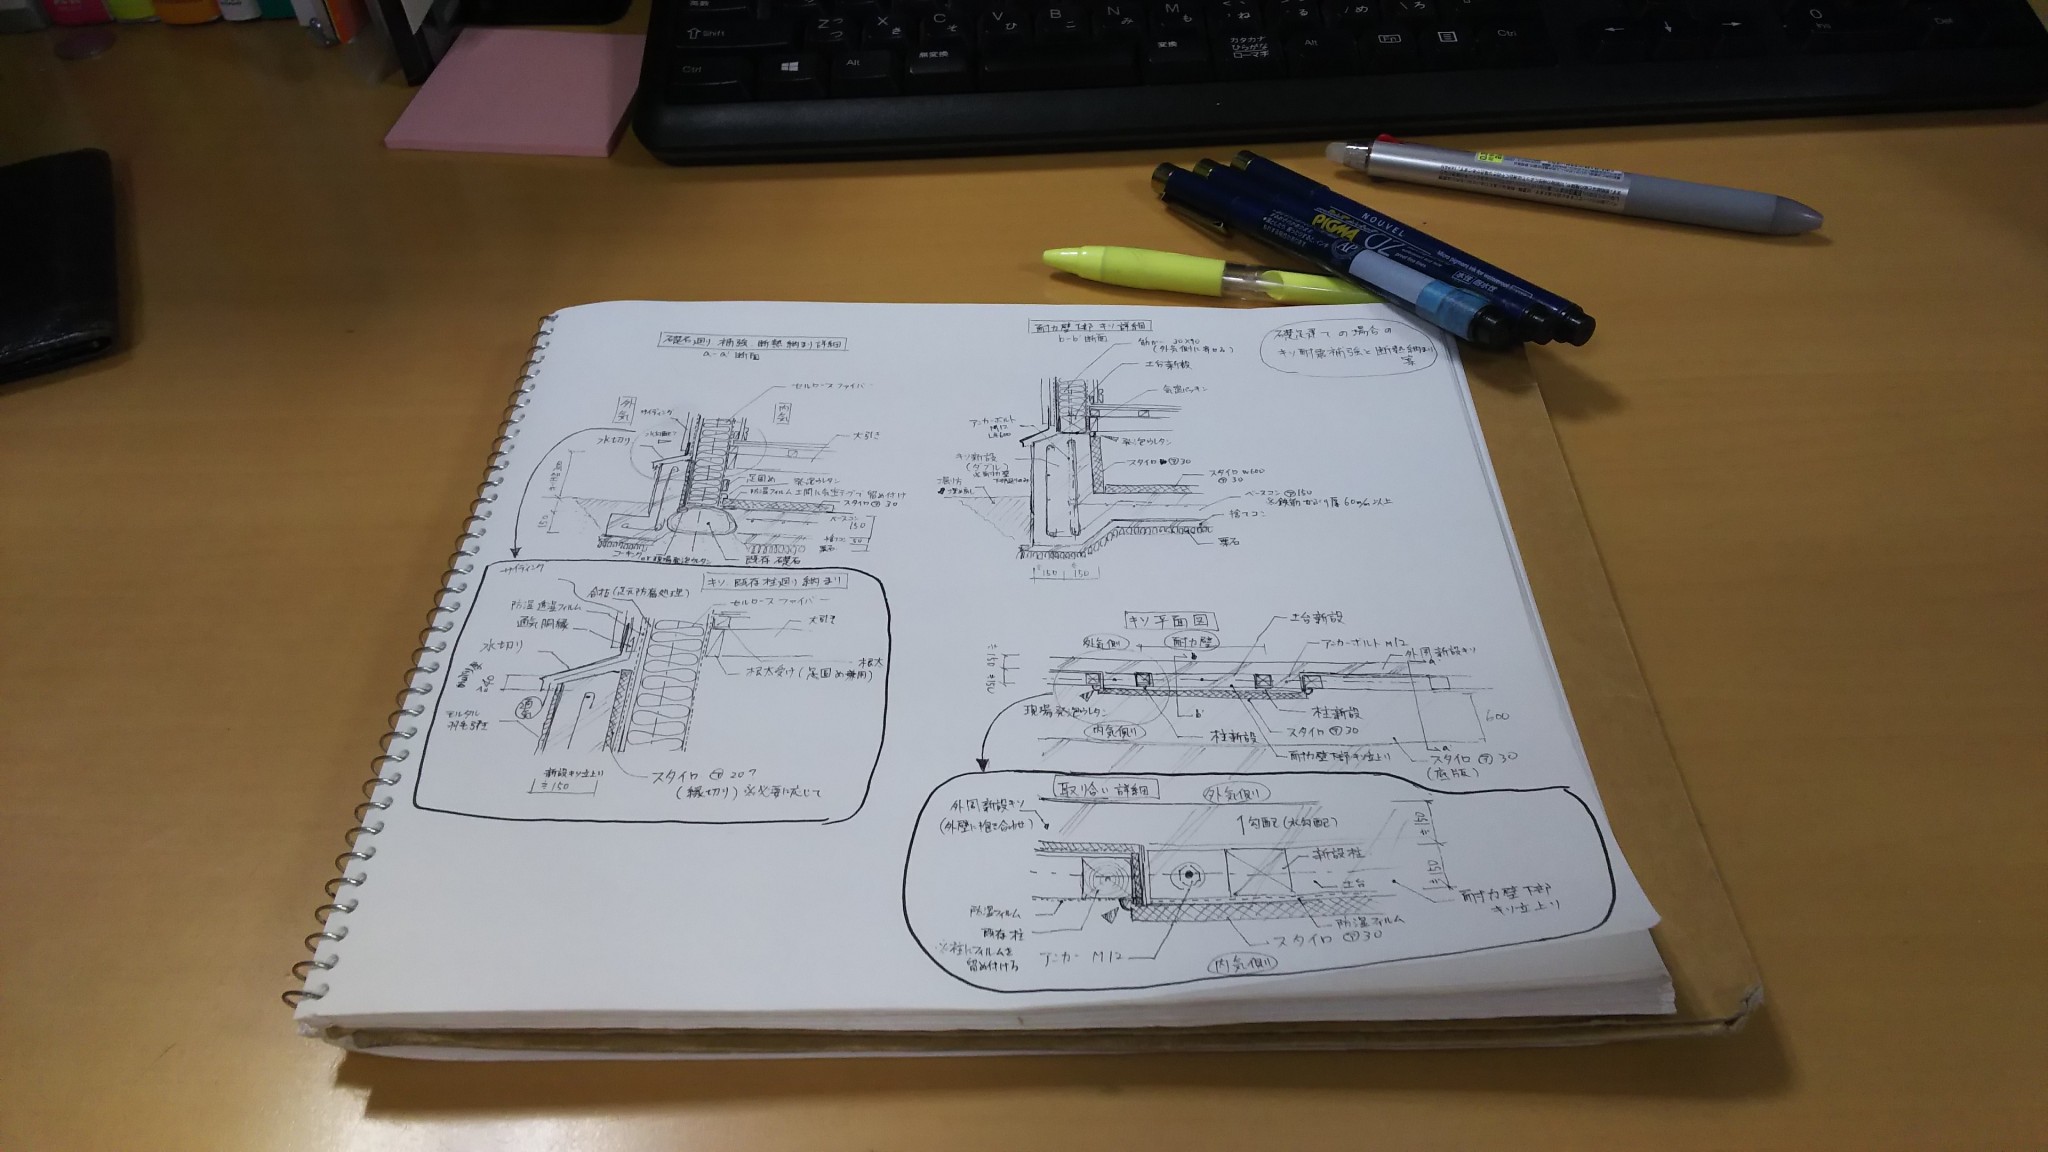 礎石廻り 補強、断熱納まり詳細
a-a' 断面
セルロースファイバー
外気
内気
サイディング
水切り
大引き
足固め
発泡ウレタン
スタイロ㋐30
ベースコン
150
捨てコン
50
栗石
150
コーキング or 現場発泡ウレタン
既存礎石
耐力壁下部キソ詳細
b-b' 断面
筋かい 30×90
土台新設
気密パッキン
アンカーボルト
M12
発泡ウレタン
キソ新設
(ダブル)
スタイロ㋐30
スタイロ w600
㋐30
埋め戻し
ベースコン㋐150
※鉄筋かぶり厚60m/m以上
捨てコン
栗石
≒150
≒150
礎石建ての場合の
キソ耐震補強と断熱納まり
等
サイディング
キソ 既存柱廻り納まり
合板(足元防腐処理)
セルロースファイバー
防湿透湿フィルム
通気胴縁
大引き
水切り
根太
根太受け(足固め兼用)
通気
モルタル
刷毛引き
新設キソ立上り
≒150
スタイロ㋐20?
(縁切り)※必要に応じて
キソ平面図
土台新設
外気側
耐力壁
アンカーボルト M12
外周新設キソ
≒150
≒150
b
a'
現場発泡ウレタン
b'
内気側
柱新設
柱新設
スタイロ㋐30
耐力壁下部キソ立上り
600
a'
スタイロ㋐30
(底版)
取り合い詳細
外気側
外周新設キソ
(外壁に抱き合わせ)
↑勾配(水勾配)
≒150
新設柱
≒150
土台
耐力壁下部
キソ立上り
防湿フィルム
既存柱
※柱にフィルムを
留め付ける
アンカー M12
スタイロ㋐30
防湿フィルム
内気側
NOUVEL
PIGMA
Shift
Z
つ
X
C
そ
V
ひ
B
N
み
M
も
Ctrl
Alt
無変換
変換
カタカナ
ひらがな
ローマ字
Alt
Fn
Ctrl
0
Ins
Del